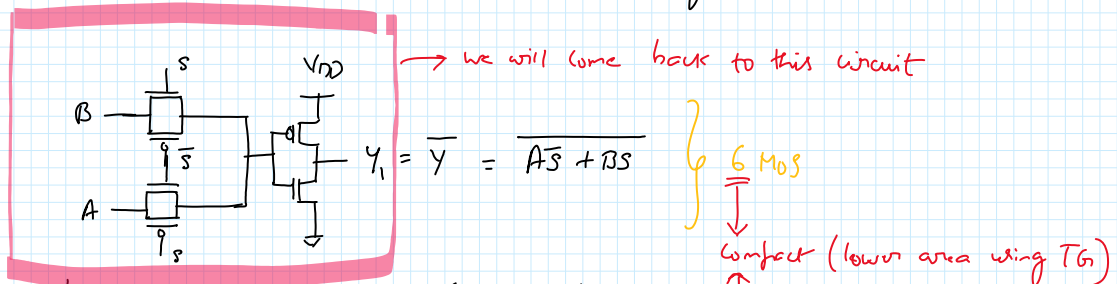 S
VDD
→ we will come back to this circuit
B
S̅
Y₁ = Y̅ = \overline{AS̅ + BS}
6 MOS
A
S
Compact (lower area using TG)